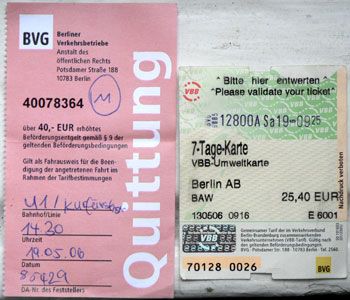 BVG
Berliner
Verkehrsbetriebe
Anstalt des
öffentlichen Rechts
Potsdamer Straße 188
10783 Berlin
40078364
über 40,- EUR erhöhtes
Beförderungsentgelt gemäß § 9 der
geltenden Beförderungsbedingungen
Gilt als Fahrausweis für die Been-
digung der angetretenen Fahrt im
Rahmen der Tarifbestimmungen
U1/
Bahnhof/Linie
14.30
Uhrzeit
19.05.06
Datum
85429
DA-Nr. des Feststellers
Quittung
VBB
"Bitte hier entwerten"
"Please validate your ticket"
12800A Sa19-0925
7-Tage-Karte
VBB-Umweltkarte
Berlin AB
BAW 25,40 EUR
130506 0916 E 6001
Nachdruck verboten
VBB
Gemeinsamer Tarif der im Verkehrsverbund
Berlin-Brandenburg zusammenwirkenden
Verkehrsunternehmen (VBB-Tarif). Gültig nach
den geltenden VBB-Beförderungsbedingungen.
70128 0026
BVG